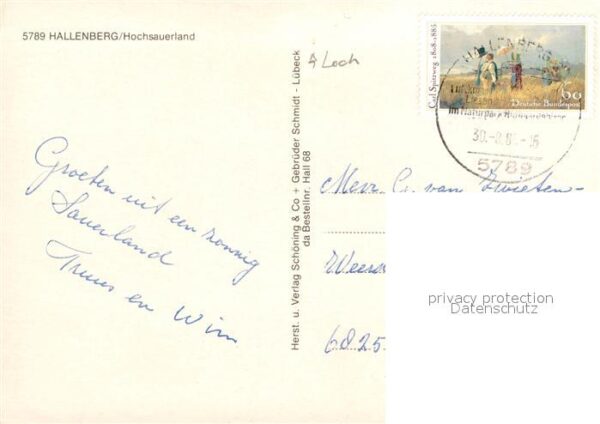 5789 HALLENBERG/Hochsauerland
Groeten uit een zonnig
Sauerland
Truus en Wim
Herst. u. Verlag Schöning & Co + Gebrüder Schmidt - Lübeck
da Bestellnr. Hall 68
Loch
Carl Spitzweg 1808-1885
60
Deutsche Bundespost
HALLENBERG
im Naturpark
5789
Mevr. G. van Zwieten-
6825
privacy protection
Datenschutz